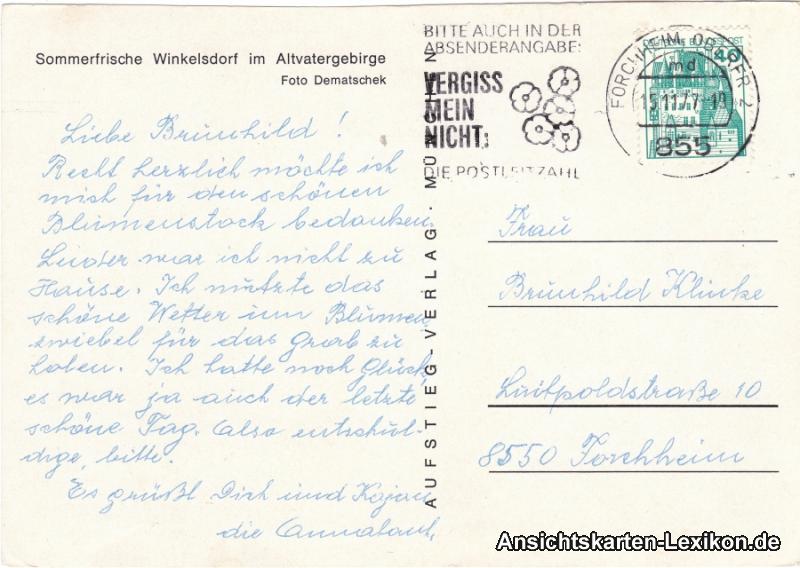 Sommerfrische Winkelsdorf im Altvatergebirge
Foto Dematschek
Liebe Brunhild!
Recht herzlich möchte ich
mich für den schönen
Blumenstock bedanken.
Leider war ich nicht zu
Hause. Ich nutzte das
schöne Wetter um Blumen
zwiebel für das Grab zu
holen. Ich hatte noch Glück
es war ja auch der letzte
schöne Tag. Also entschul-
dige, bitte.
Es grüßt Dich und Kajan
die Annatant,
AUFSTIEG-VERLAG · MÜNCHEN
BITTE AUCH IN DER
ABSENDERANGABE:
VERGISS
MEIN
NICHT:
DIE POSTLEITZAHL
FORCHHEIM, OBERFR 2
md
15.11.77-18
855
40
Frau
Brunhild Klinke
Luitpoldstraße 10
8550 Forchheim
Ansichtskarten-Lexikon.de